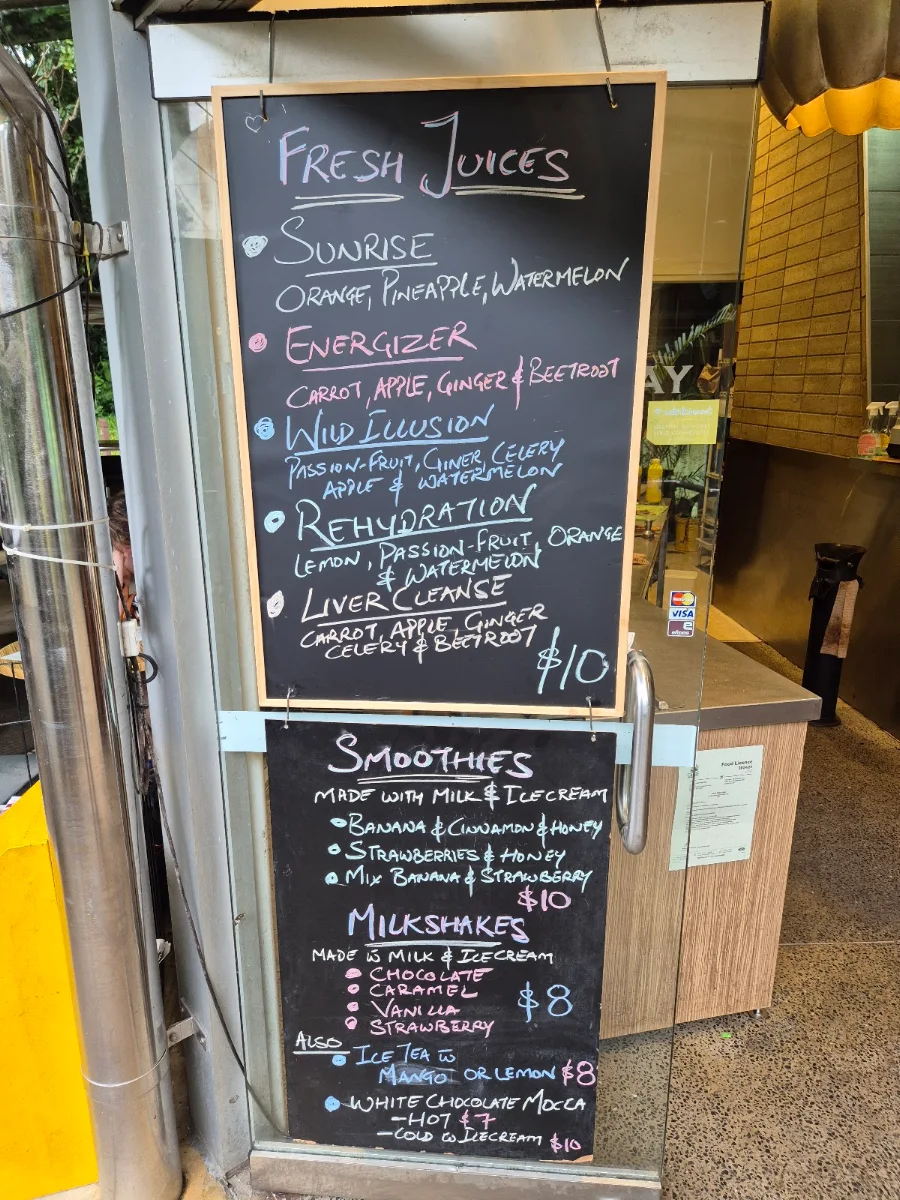 FRESH JUICES
SUNRISE
ORANGE, PINEAPPLE, WATERMELON
ENERGIZER
CARROT, APPLE, GINGER & BEETROOT
WILD ILLUSION
PASSION-FRUIT, GINER, CELERY
APPLE & WATERMELON
REHYDRATION
LEMON, PASSION-FRUIT, ORANGE
& WATERMELON
LIVER CLEANSE
CARROT, APPLE, GINGER
CELERY & BEETROOT
$10
SMOOTHIES
MADE WITH MILK & ICECREAM
BANANA & CINNAMON & HONEY
STRAWBERRIES & HONEY
MIX BANANA & STRAWBERRY
$10
MILKSHAKES
MADE W MILK & ICECREAM
CHOCOLATE
CARAMEL
$8
VANILLA
STRAWBERRY
ALSO
ICE TEA W
MANGO OR LEMON $8
WHITE CHOCOLATE MOCCA
-HOT $7
-COLD W ICECREAM $10
AY
MasterCard
VISA
eftpos
Food Licence